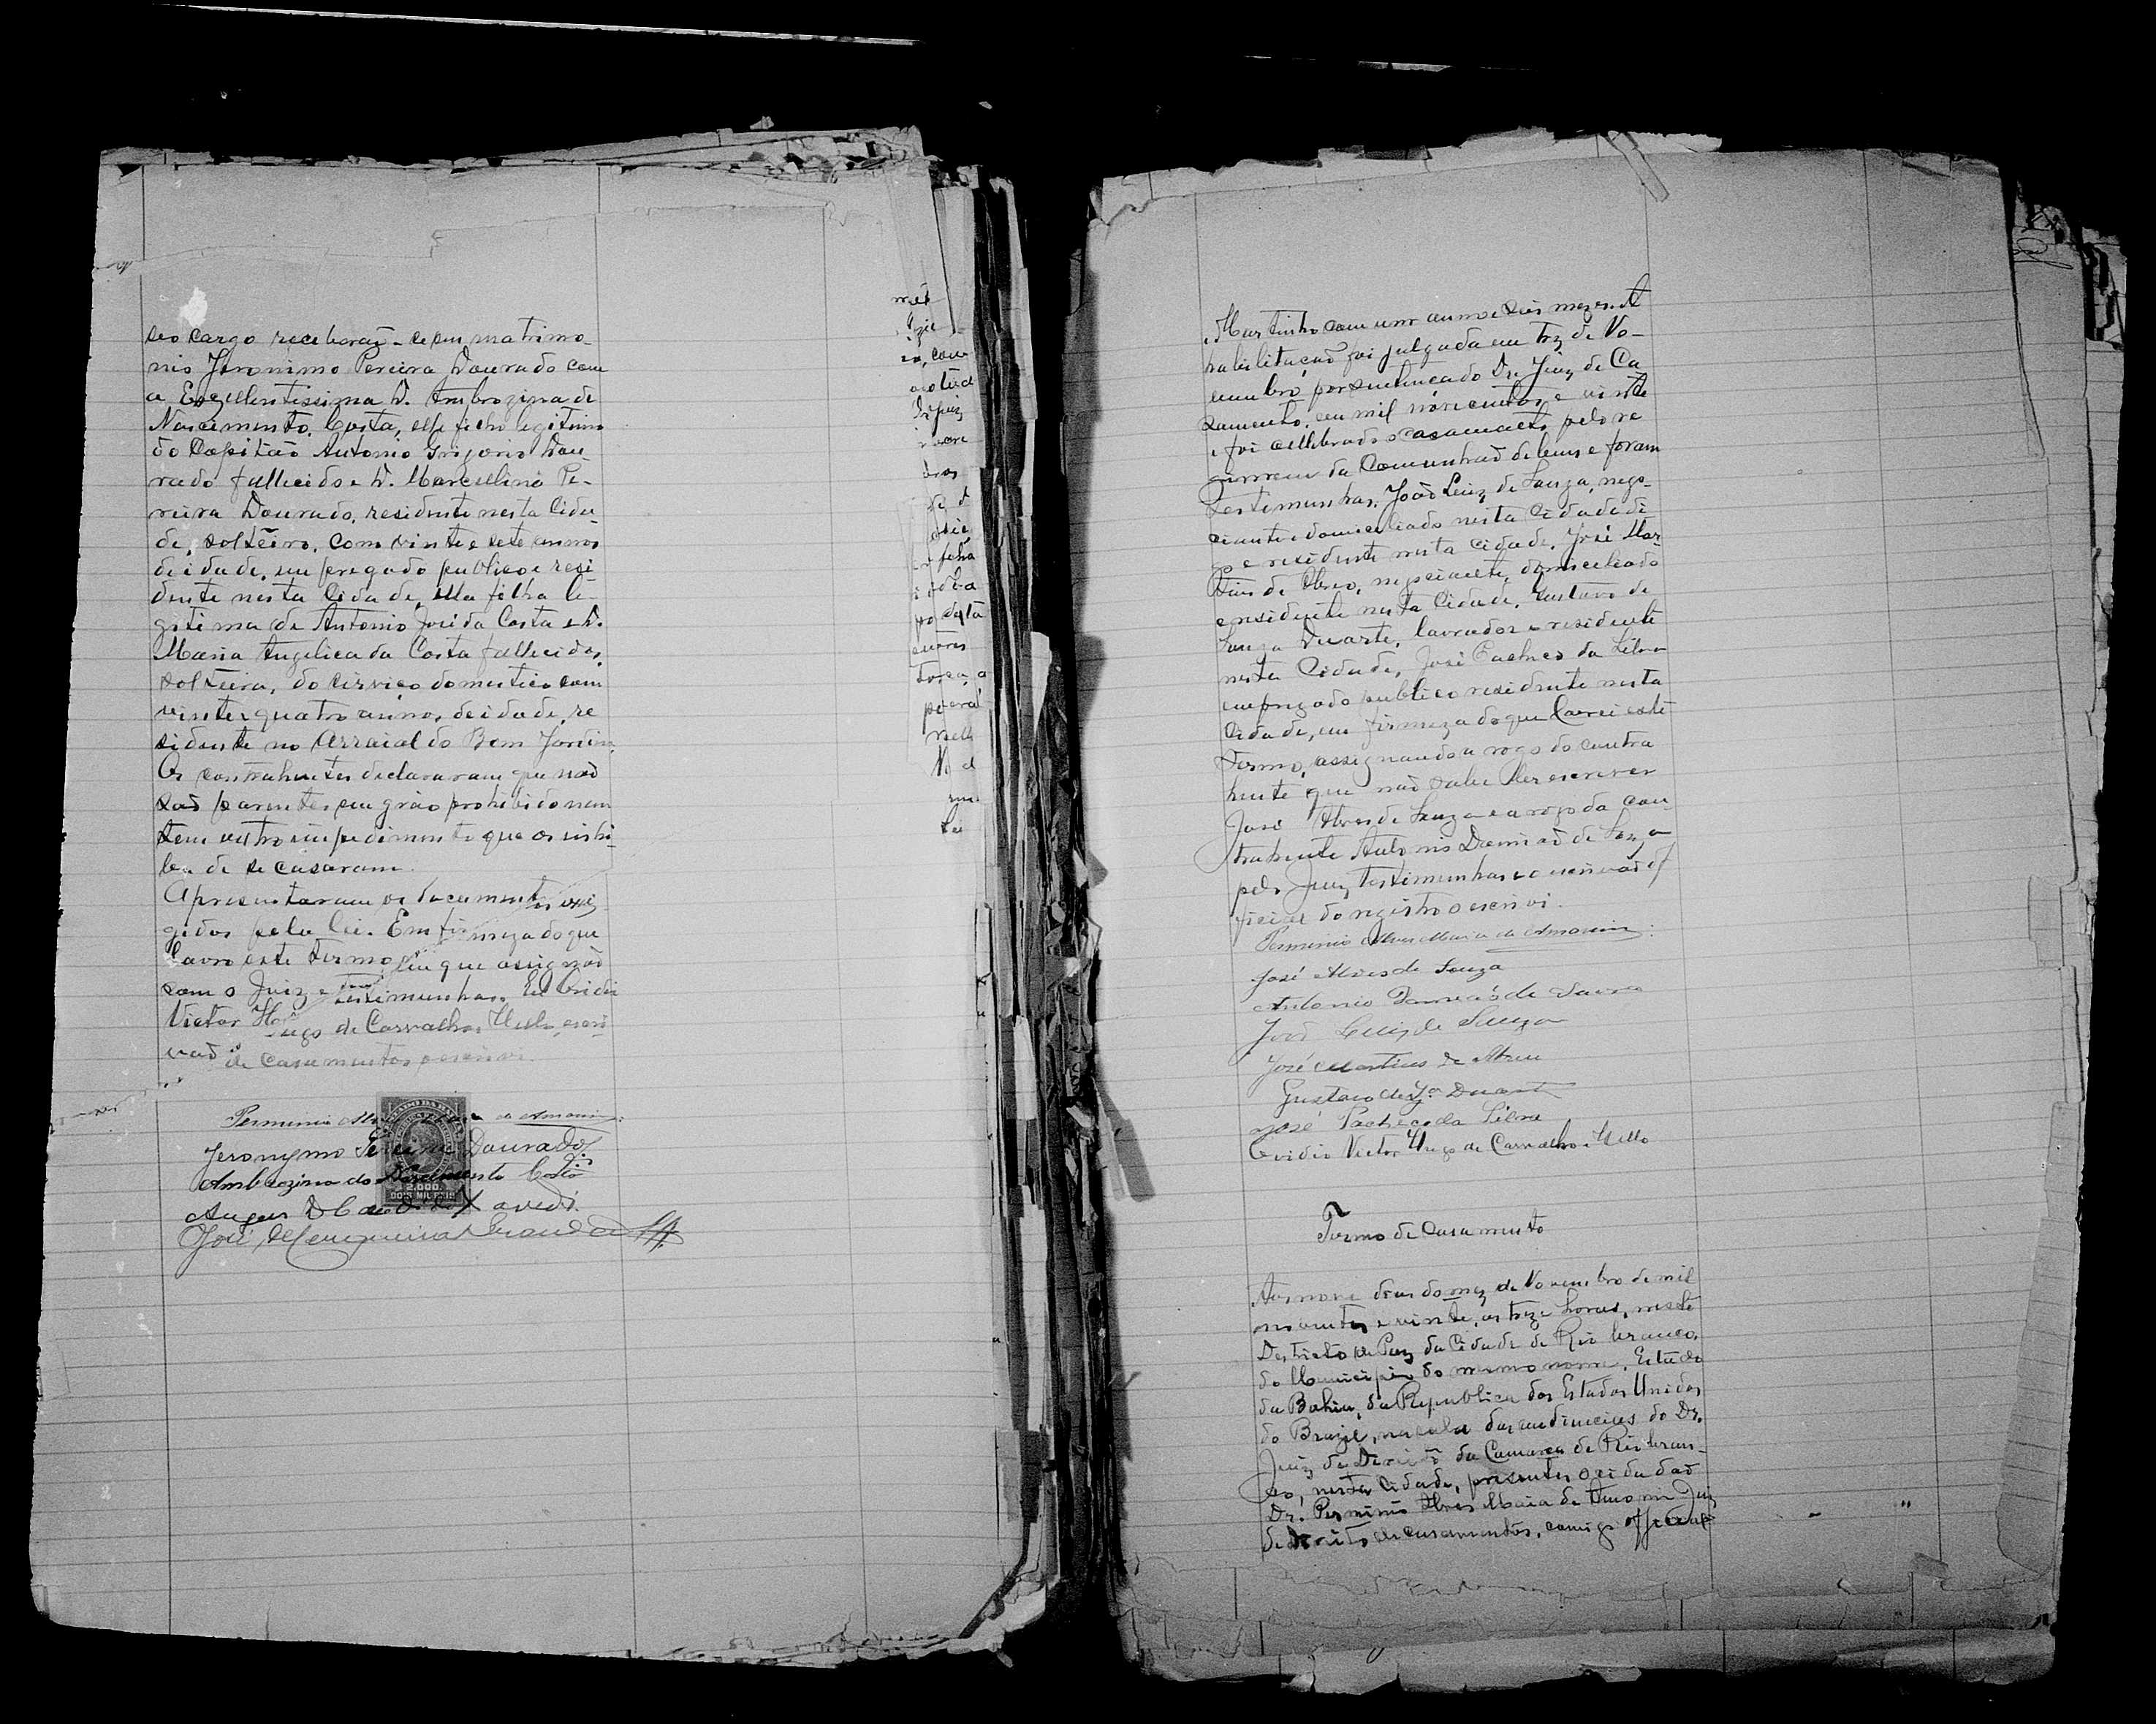 seo cargo receberaõ-se em matrimo-
nio Jeronimo Pereira Dourado com
a Excellentissima D. Ambrozina de
Nascimento Costa, elle filho legitimo
do Capitão Antonio Grigorio Dou-
rado fallecido e D. Marcellina Pe-
reira Dourado, residente nesta Cida-
de, solteiro, com vinte e sete annos
de idade, empregado publico e resi-
dente nesta Cidade, ella filha le-
gitima de Antonio José da Costa e D.
Maria Angelica da Costa fallecidos,
solteira, do cirviço domestico com
vinte e quatro annos de idade, re
sidente no Arraial do Bom Jardim.
Os contrahentes declararam que naõ
saõ parentes em gráo prohibido nem
tem outro impedimento que os inhi-
ba de se casaram.
Apresentaram os documentos exi-
gidos pela lei. Em firmeza do que
lavro este termo em que assignaõ
com o Juiz e testimunhas. Eu Ovidio
Victor Hugo de Carvalho e Mello, escri-
vaõ de casamentos o escrivi.
Perminio Alves Maia de Amorim
Jeronymo Pereira Dourado
Ambrozina do Nascimento Costa
José Cerqueira
ESTADO DA BAHIA
2.000.
DOIS MIL REIS
Martinho com um anno e dois mezes. A
habilitaçaõ foi julgada em trez de No-
vembro por sentença do Dr. Juiz de Ca
samento, em mil novecentos e vinte
e foi cellebrado o casamento pelo re
gimem da Comunhaõ de bens e foram
testimunhas, João Luiz de Souza, nego-
ciante domiciliado nesta Cidade di
go e residente nesta Cidade, José Mar-
tins de Abreo, negociante, domiciliado
e residente nesta Cidade, Gustavo de
Souza Duarte, lavrador e residente
nesta Cidade, José Pacheco da Silva
empregado publico residente nesta
Cidade, em firmeza do que lavrei este
termo, assignando a rogo do contra
hente que naõ sabe ler escrever
José Alves de Souza e a rogo da con
trahente Antonio Damiaõ de Souza
pelo Juiz, testimunhas e o escrivaõ of
ficial do registro o escrivi.
Perminio Alves Maia de Amorim
José Alves de Souza
Antonio Damiaõ de Souza
João Luiz de Souza
José Martins de Abreu
Gustavo de Sza Duarte
José Pacheco da Silva
Ovidio Victor Hugo de Carvalho e Mello
Termo de Casamento
Aos nove dias do mez de Novembro de mil
novecentos e vinte, as treze horas, neste
Destricto de Paz da Cidade de Rio branco,
do Municipio do mesmo nome, Estado
da Bahia, da Republica dos Estados Unidos
do Brazil, na sala das audiencias do Dr.
Juiz de Direito da Comarca de Rio bran-
co, nesta Cidade, presentes o cidadaõ
Dr. Perminio Alves Maia de Amorim Juiz
de Direito de casamentos, comigo official